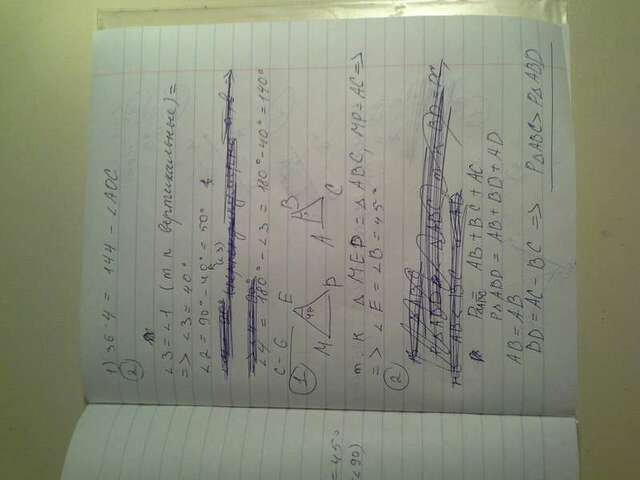 1) 36·4 = 144 - ∠AOC
2)
∠3 = ∠1 (т к вертикальные) =
=> ∠3 = 40°
∠2 = 90° - 40° = 50°
(∠3)
∠4 = 180° - ∠3 = 180° - 40° = 140°
С-6
1
M E P
A B C
т. к △ MEP = △ ABC, MP = AC =>
=> ∠E = ∠B = 45°
2
= AB + BC + AC
P△ ABD = AB + BD + AD
AB = AB
= AC - BC => P△ABC > P△ABD
= 45°
< 90)